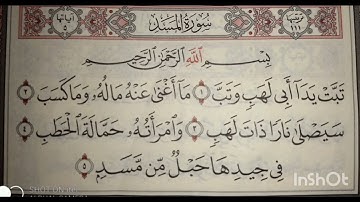 آياتها ٥ سورة المسد ترتيبها ١١١
بِسْمِ اللَّهِ الرَّحْمَٰنِ الرَّحِيمِ
تَبَّتْ يَدَا أَبِي لَهَبٍ وَتَبَّ ١ مَا أَغْنَىٰ عَنْهُ مَالُهُ وَمَا كَسَبَ ٢
سَيَصْلَىٰ نَارًا ذَاتَ لَهَبٍ ٣ وَامْرَأَتُهُ حَمَّالَةَ الْحَطَبِ ٤
فِي جِيدِهَا حَبْلٌ مِّن مَّسَدٍ ٥
InShOt